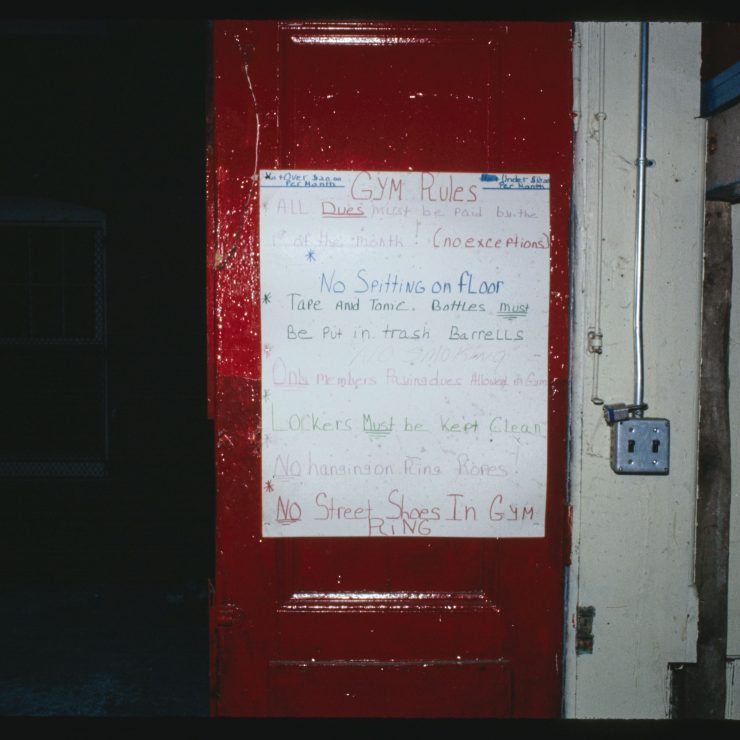 Over $20.00
Per Month
GYM Rules
Under
Per Month
ALL Dues must be paid by the
of the month! (no exceptions)
No Spitting on fLoor
Tape And Tonic. Bottles Must
Be Put in trash Barrells
NO SMOKING
Only members Paying dues Allowed in Gym
Lockers Must be Kept Clean
No hanging on Ring Ropes!
No Street Shoes In Gym
RING